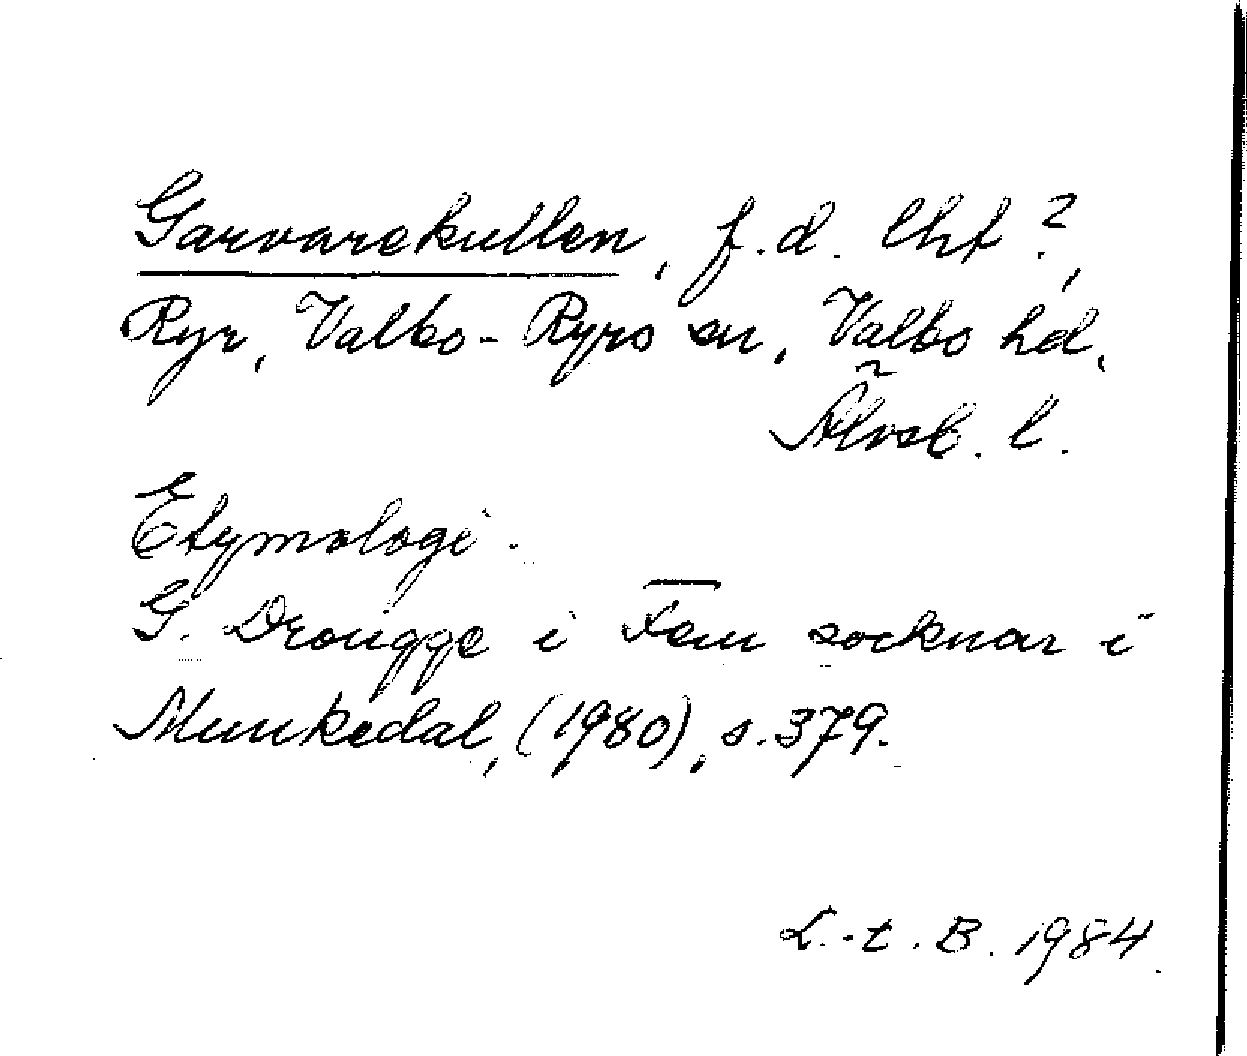 Garvarekullen, f.d. lht ?,
Ryr, Valbo-Ryrs sn, Valbo hd,
Älvsb. l.
Etymologi.
G. Drougge i Fem socknar i
Munkedal, (1980), s. 379.
L.-t. B. 1984.